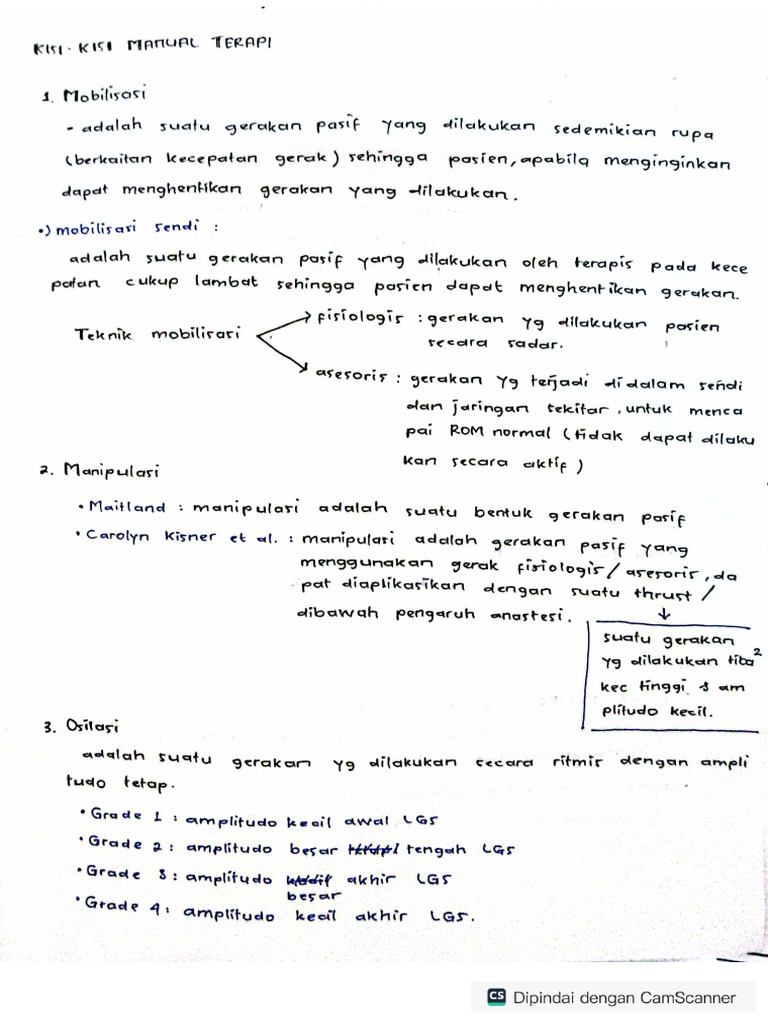 KISI-KISI MANUAL TERAPI
1. Mobilisasi
- adalah suatu gerakan pasif yang dilakukan sedemikian rupa
(berkaitan kecepatan gerak) sehingga pasien, apabila menginginkan
dapat menghentikan gerakan yang dilakukan.
•) mobilisasi sendi :
adalah suatu gerakan pasif yang dilakukan oleh terapis pada kece
patan cukup lambat sehingga pasien dapat menghentikan gerakan.
Teknik mobilisasi
fisiologis : gerakan yg dilakukan pasien
secara sadar.
asesoris : gerakan yg terjadi didalam sendi
dan jaringan sekitar, untuk menca
pai ROM normal (tidak dapat dilaku
kan secara aktif)
2. Manipulasi
• Maitland : manipulasi adalah suatu bentuk gerakan pasif
• Carolyn Kisner et al. : manipulasi adalah gerakan pasif yang
menggunakan gerak fisiologis/asesoris, da
pat diaplikasikan dengan suatu thrust /
dibawah pengaruh anastesi.
suatu gerakan
yg dilakukan tiba²
kec tinggi & am
plitudo kecil.
3. Osilasi
adalah suatu gerakan yg dilakukan secara ritmis dengan ampli
tudo tetap.
• Grade 1 : amplitudo kecil awal LGS
• Grade 2 : amplitudo besar tengah LGS
• Grade 3 : amplitudo akhir LGS
besar
• Grade 4 : amplitudo kecil akhir LGS.
CS Dipindai dengan CamScanner